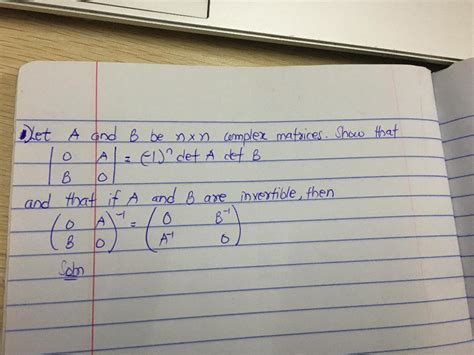 Let A and B be n×n complex matrices. Show that
| O A |
| B O | = (-1)ⁿ det A det B
and that if A and B are invertible, then
( O A )⁻¹ = ( O B⁻¹ )
( B O ) ( A⁻¹ O )
Soln